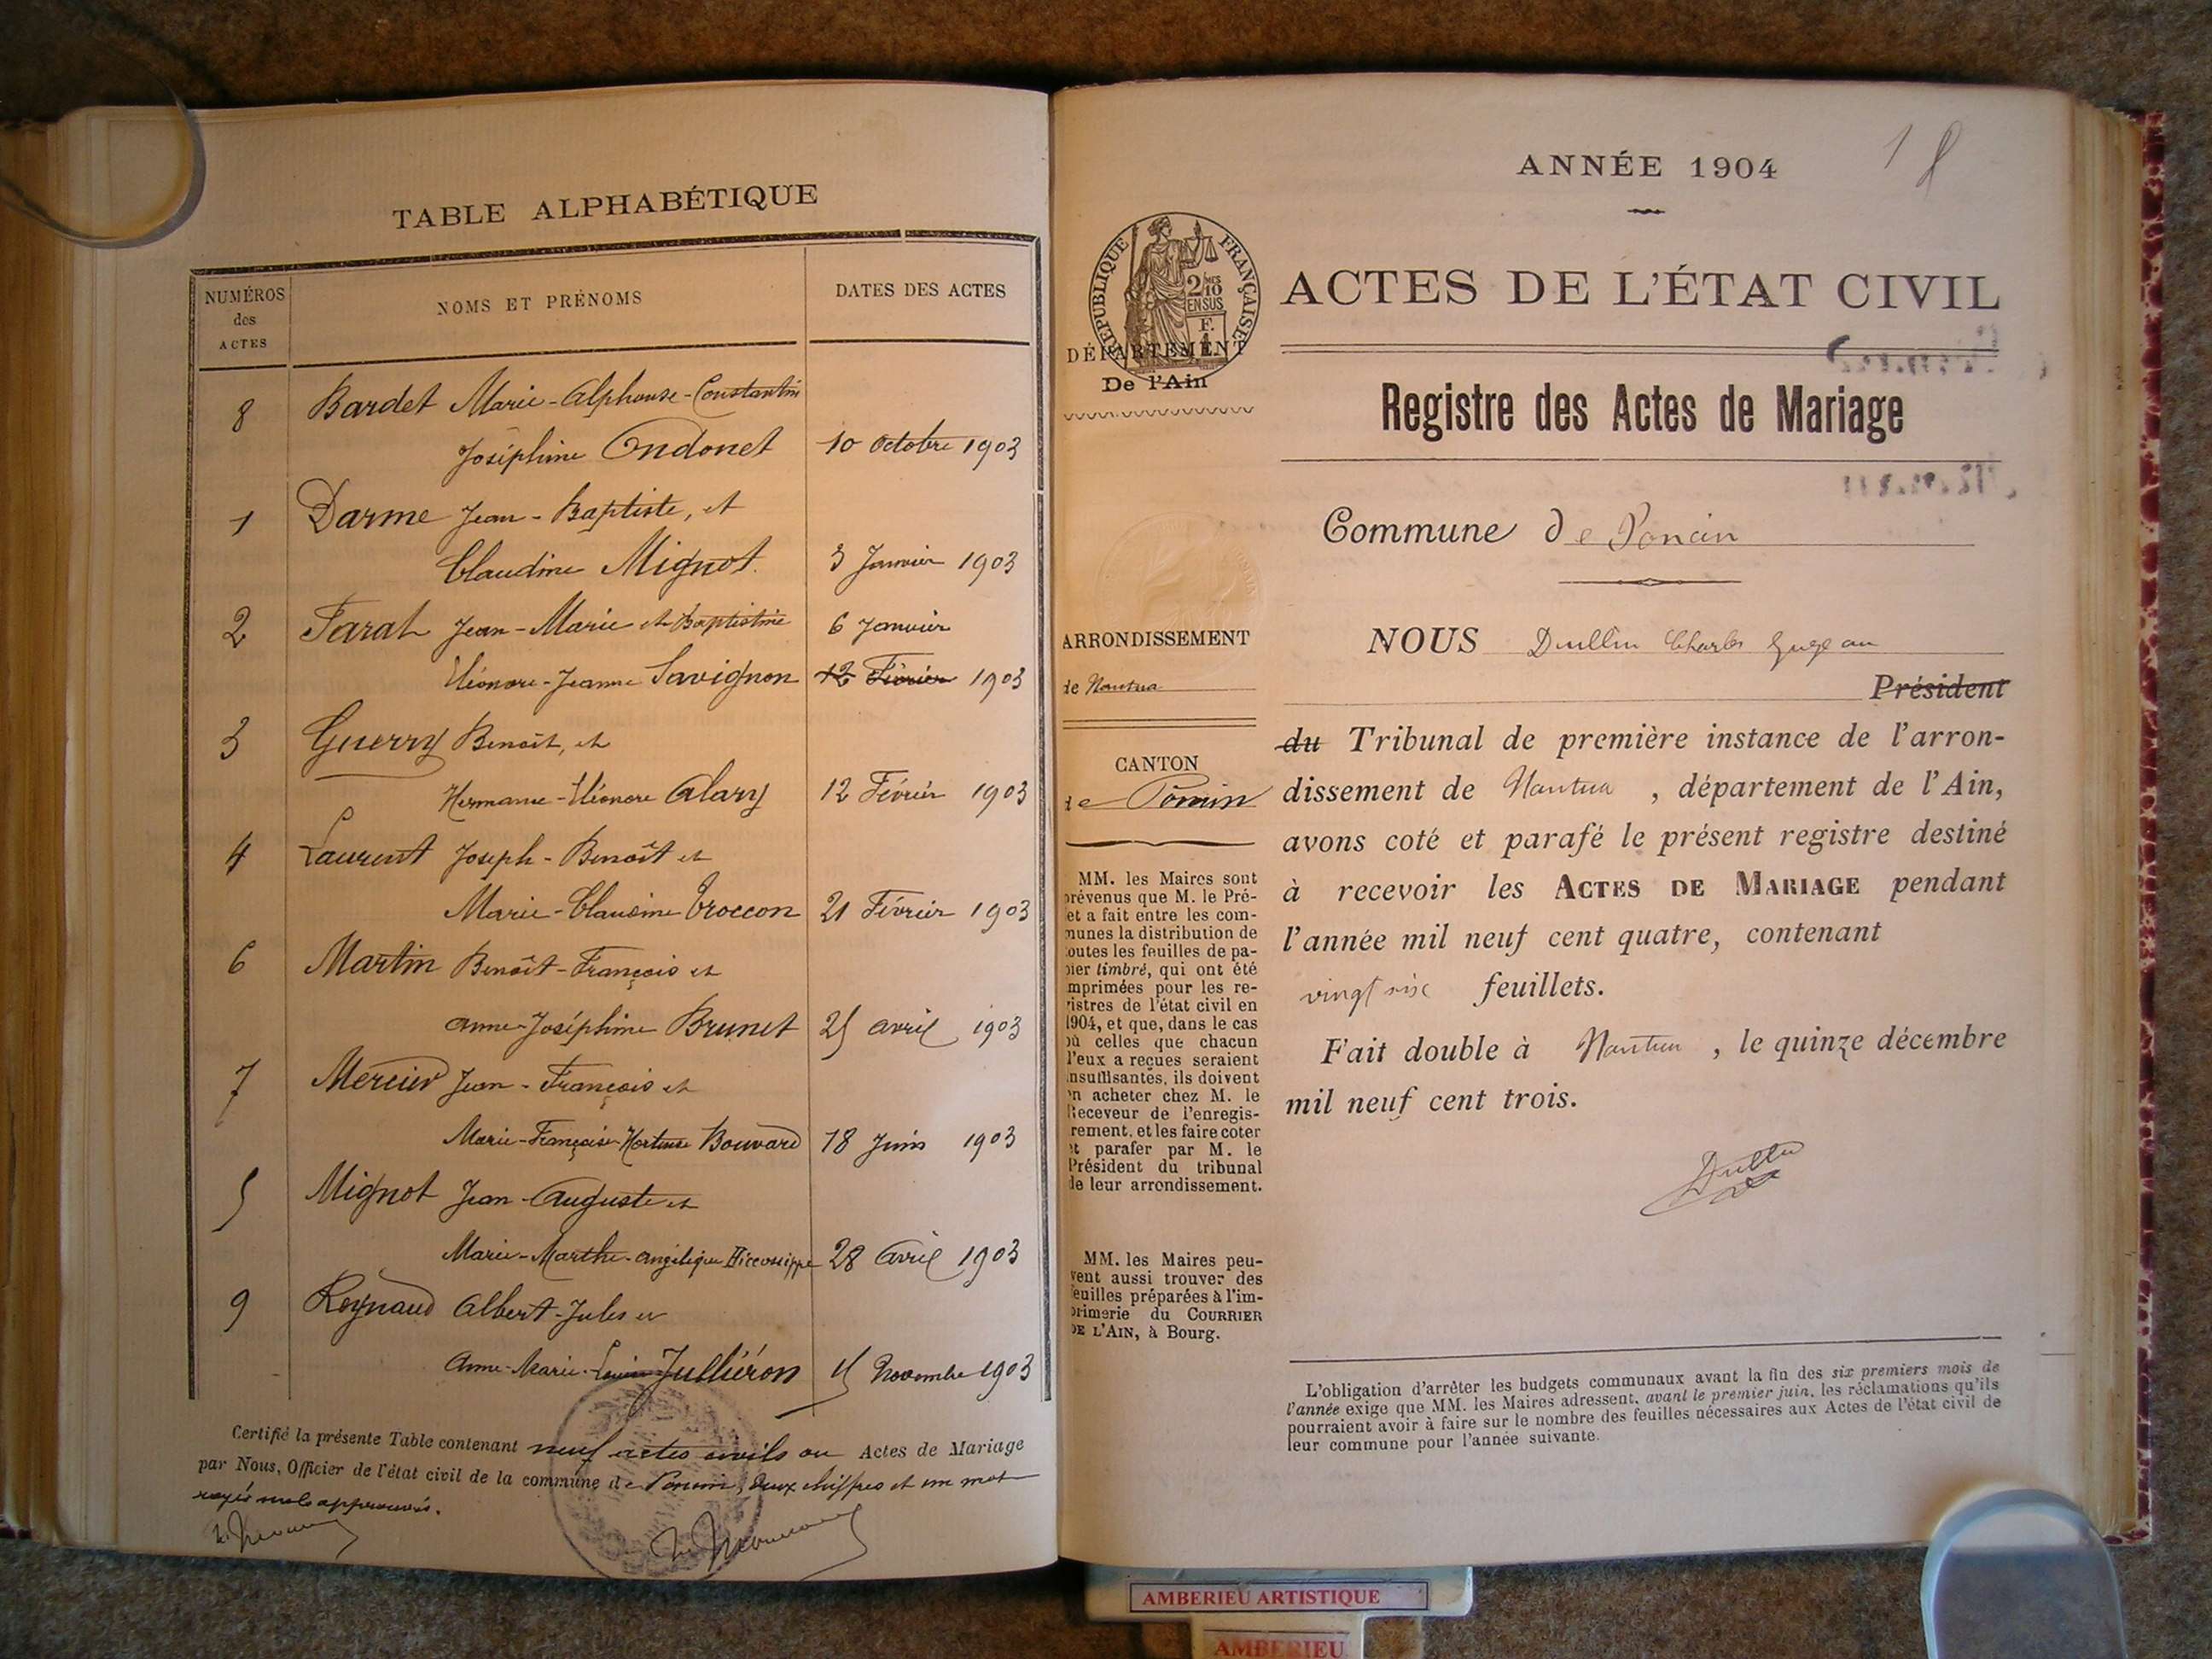 TABLE ALPHABÉTIQUE
NUMÉROS des ACTES
NOMS ET PRÉNOMS
DATES DES ACTES
8 Bardet Marie-Alphonse-Constantin
Joséphine Ondonet 10 Octobre 1903
1 Darme Jean-Baptiste, et
Claudine Mignot 3 Janvier 1903
2 Farat Jean-Marie et Baptistine 6 Janvier
Eléonore-Jeanne Savignon 12 Février 1903
3 Guerry Benoît, et
Hermance-Eléonore Alary 12 Février 1903
4 Laurent Joseph-Benoît et
Marie-Claudine Troccon 21 Février 1903
6 Martin Benoît-François et
Anne-Joséphine Brunet 25 avril 1903
7 Mercier Jean-François et
Marie-Françoise-Hortense Bouvard 18 Juin 1903
5 Mignot Jean-Auguste et
Marie-Marthe-Angélique 28 Avril 1903
9 Reynaud Albert-Jules et
Anne-Marie-Louise Julliéron 15 Novembre 1903
Certifié la présente Table contenant neuf actes civils ou Actes de Mariage
par Nous, Officier de l'état civil de la commune de Poncin, deux chiffres et un mot
rayés nuls approuvés.
ANNÉE 1904
1
RÉPUBLIQUE FRANÇAISE
2/10
EN SUS
F.
1
ACTES DE L'ÉTAT CIVIL
DÉPARTEMENT
De l'Ain
Registre des Actes de Mariage
Commune de Poncin
ARRONDISSEMENT
de Nantua
CANTON
de Poncin
MM. les Maires sont
prévenus que M. le Pré-
et a fait entre les com-
munes la distribution de
toutes les feuilles de pa-
pier timbré, qui ont été
imprimées pour les re-
gistres de l'état civil en
1904, et que, dans le cas
où celles que chacun
d'eux a reçues seraient
insuffisantes, ils doivent
en acheter chez M. le
Receveur de l'enregis-
rement, et les faire coter
et parafer par M. le
Président du tribunal
de leur arrondissement.
MM. les Maires peu-
vent aussi trouver des
feuilles préparées à l'im-
primerie du COURRIER
DE L'AIN, à Bourg.
NOUS Dullin Charles
Président
du Tribunal de première instance de l'arron-
dissement de Nantua, département de l'Ain,
avons coté et parafé le présent registre destiné
à recevoir les ACTES DE MARIAGE pendant
l'année mil neuf cent quatre, contenant
vingt six feuillets.
Fait double à Nantua, le quinze décembre
mil neuf cent trois.
Dullin
L'obligation d'arrêter les budgets communaux avant la fin des six premiers mois de
l'année exige que MM. les Maires adressent, avant le premier juin, les réclamations qu'ils
pourraient avoir à faire sur le nombre des feuilles nécessaires aux Actes de l'état civil de
leur commune pour l'année suivante.
AMBERIEU ARTISTIQUE
AMBERIEU